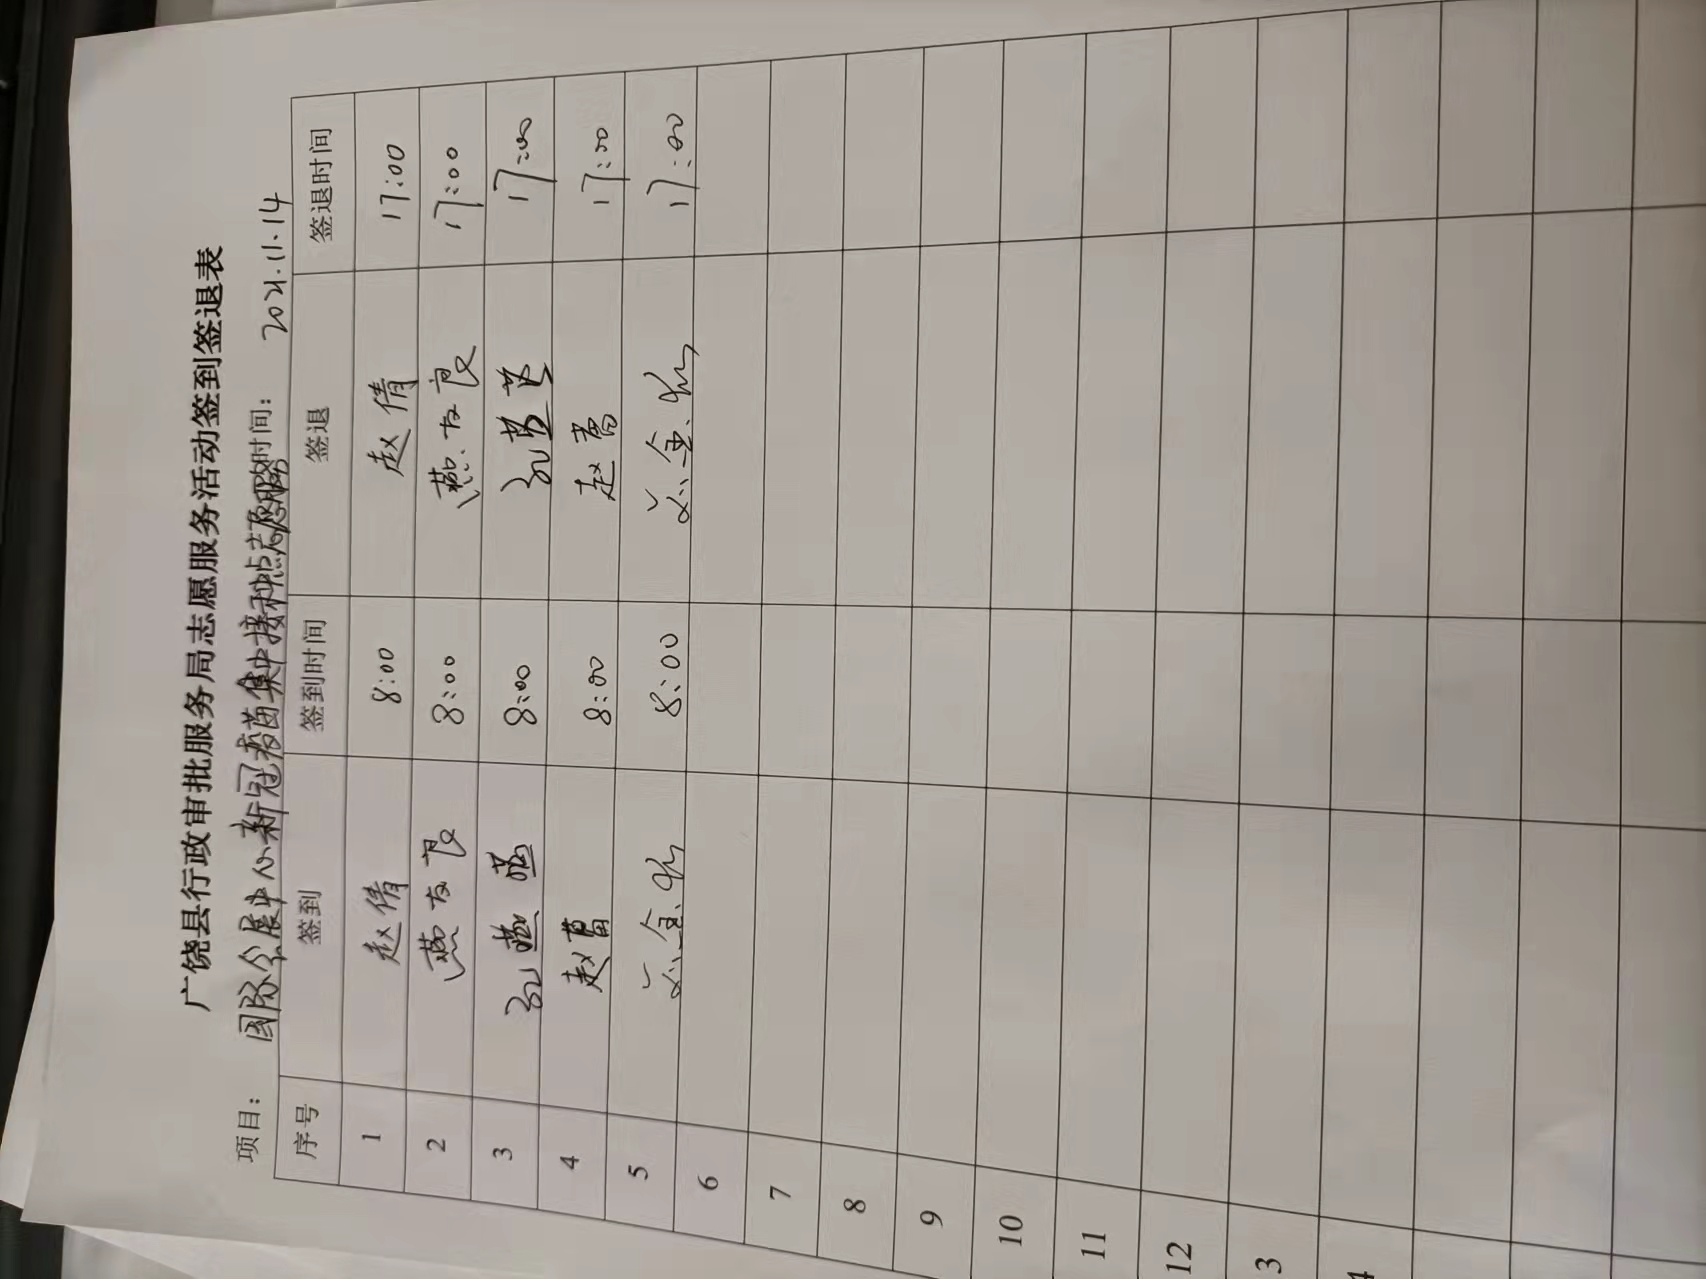 广饶县行政审批服务局志愿服务活动签到签退表
项目: 国际会展中心新冠疫苗集中接种点志愿服务 时间: 2021.11.14
序号 签到 签到时间 签退 签退时间
1 赵倩 8:00 赵倩 17:00
2 燕友良 8:00 燕友良 17:00
3 8:00 17:00
4 赵 8:00 赵 17:00
5 金 8:00 金 17:00
6
7
8
9
10
11
12
3
4